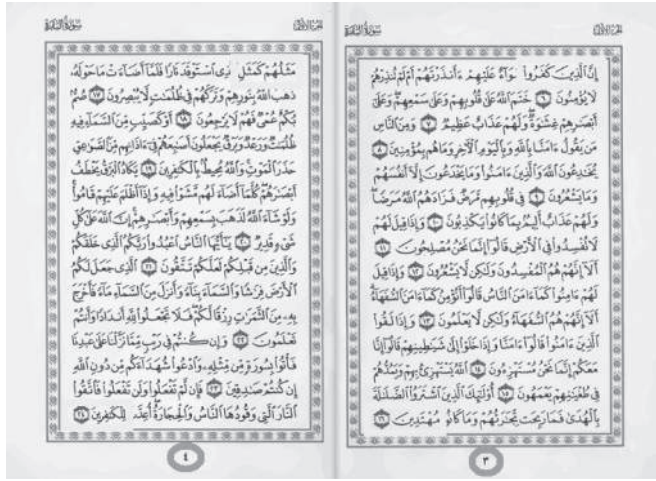 الجزء الأول
سورة البقرة
إِنَّ الَّذِينَ كَفَرُوا وَآءٌ عَلَيْهِمْ ءَأَنذَرْتَهُمْ أَمْ لَمْ تُنذِرْهُمْ
لَا يُؤْمِنُونَ ٦ خَتَمَ اللَّهُ عَلَىٰ قُلُوبِهِمْ وَعَلَىٰ سَمْعِهِمْ وَعَلَىٰ
أَبْصَٰرِهِمْ غِشَٰوَةٌ وَلَهُمْ عَذَابٌ عَظِيمٌ ٧ وَمِنَ النَّاسِ
مَن يَقُولُ ءَامَنَّا بِاللَّهِ وَبِالْيَوْمِ الْءَاخِرِ وَمَا هُم بِمُؤْمِنِينَ ٨
يُخَٰدِعُونَ اللَّهَ وَالَّذِينَ ءَامَنُوا وَمَا يَخْدَعُونَ إِلَّا أَنفُسَهُمْ
وَمَا يَشْعُرُونَ ٩ فِى قُلُوبِهِم مَّرَضٌ فَزَادَهُمُ اللَّهُ مَرَضًا
وَلَهُمْ عَذَابٌ أَلِيمٌ بِمَا كَانُوا يَكْذِبُونَ ١٠ وَإِذَا قِيلَ لَهُمْ
لَا تُفْسِدُوا فِى الْأَرْضِ قَالُوا إِنَّمَا نَحْنُ مُصْلِحُونَ ١١
أَلَآ إِنَّهُمْ هُمُ الْمُفْسِدُونَ وَلَٰكِن لَّا يَشْعُرُونَ ١٢ وَإِذَا قِيلَ
لَهُمْ ءَامِنُوا كَمَآ ءَامَنَ النَّاسُ قَالُوا أَنُؤْمِنُ كَمَآ ءَامَنَ السُّفَهَآءُ
أَلَآ إِنَّهُمْ هُمُ السُّفَهَآءُ وَلَٰكِن لَّا يَعْلَمُونَ ١٣ وَإِذَا لَقُوا
الَّذِينَ ءَامَنُوا قَالُوا ءَامَنَّا وَإِذَا خَلَوْا إِلَىٰ شَيَٰطِينِهِمْ قَالُوا إِنَّا
مَعَكُمْ إِنَّمَا نَحْنُ مُسْتَهْزِءُونَ ١٤ اللَّهُ يَسْتَهْزِئُ بِهِمْ وَيَمُدُّهُمْ
فِى طُغْيَٰنِهِمْ يَعْمَهُونَ ١٥ أُولَٰٓئِكَ الَّذِينَ اشْتَرَوُا الضَّلَٰلَةَ
بِالْهُدَىٰ فَمَا رَبِحَت تِّجَٰرَتُهُمْ وَمَا كَانُوا مُهْتَدِينَ ١٦
٣
الجزء الأول
سورة البقرة
مَثَلُهُمْ كَمَثَلِ ذِى اسْتَوْقَدَ نَارًا فَلَمَّآ أَضَآءَتْ مَا حَوْلَهُ
ذَهَبَ اللَّهُ بِنُورِهِمْ وَتَرَكَهُمْ فِى ظُلُمَٰتٍ لَّا يُبْصِرُونَ ١٧ صُمٌّ
بُكْمٌ عُمْىٌ فَهُمْ لَا يَرْجِعُونَ ١٨ أَوْ كَصَيِّبٍ مِّنَ السَّمَآءِ فِيهِ
ظُلُمَٰتٌ وَرَعْدٌ وَبَرْقٌ يَجْعَلُونَ أَصَٰبِعَهُمْ فِىٓ ءَاذَانِهِم مِّنَ الصَّوَٰعِقِ
حَذَرَ الْمَوْتِ وَاللَّهُ مُحِيطٌ بِالْكَٰفِرِينَ ١٩ يَكَادُ الْبَرْقُ يَخْطَفُ
أَبْصَٰرَهُمْ كُلَّمَآ أَضَآءَ لَهُم مَّشَوْا فِيهِ وَإِذَآ أَظْلَمَ عَلَيْهِمْ قَامُوا
وَلَوْ شَآءَ اللَّهُ لَذَهَبَ بِسَمْعِهِمْ وَأَبْصَٰرِهِمْ إِنَّ اللَّهَ عَلَىٰ كُلِّ
شَىْءٍ قَدِيرٌ ٢٠ يَٰٓأَيُّهَا النَّاسُ اعْبُدُوا رَبَّكُمُ الَّذِى خَلَقَكُمْ
وَالَّذِينَ مِن قَبْلِكُمْ لَعَلَّكُمْ تَتَّقُونَ ٢١ الَّذِى جَعَلَ لَكُمُ
الْأَرْضَ فِرَٰشًا وَالسَّمَآءَ بِنَآءً وَأَنزَلَ مِنَ السَّمَآءِ مَآءً فَأَخْرَجَ
بِهِ مِنَ الثَّمَرَٰتِ رِزْقًا لَّكُمْ فَلَا تَجْعَلُوا لِلَّهِ أَندَادًا وَأَنتُمْ
تَعْلَمُونَ ٢٢ وَإِن كُنتُمْ فِى رَيْبٍ مِّمَّا نَزَّلْنَا عَلَىٰ عَبْدِنَا
فَأْتُوا بِسُورَةٍ مِّن مِّثْلِهِ وَادْعُوا شُهَدَآءَكُم مِّن دُونِ اللَّهِ
إِن كُنتُمْ صَٰدِقِينَ ٢٣ فَإِن لَّمْ تَفْعَلُوا وَلَن تَفْعَلُوا فَاتَّقُوا
النَّارَ الَّتِى وَقُودُهَا النَّاسُ وَالْحِجَارَةُ أُعِدَّ لِلْكَٰفِرِينَ ٢٤
٤